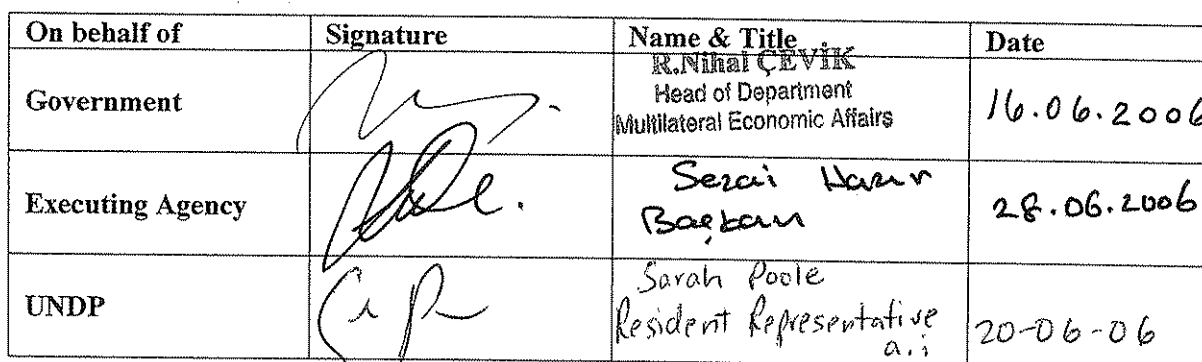 On behalf of Signature Name & Title Date
Government R.Nihal ÇEVİK
Head of Department
Multilateral Economic Affairs 16.06.2006
Executing Agency Sezai Hazır
Başkan 28.06.2006
UNDP Sarah Poole
Resident Representative
a.i 20-06-06